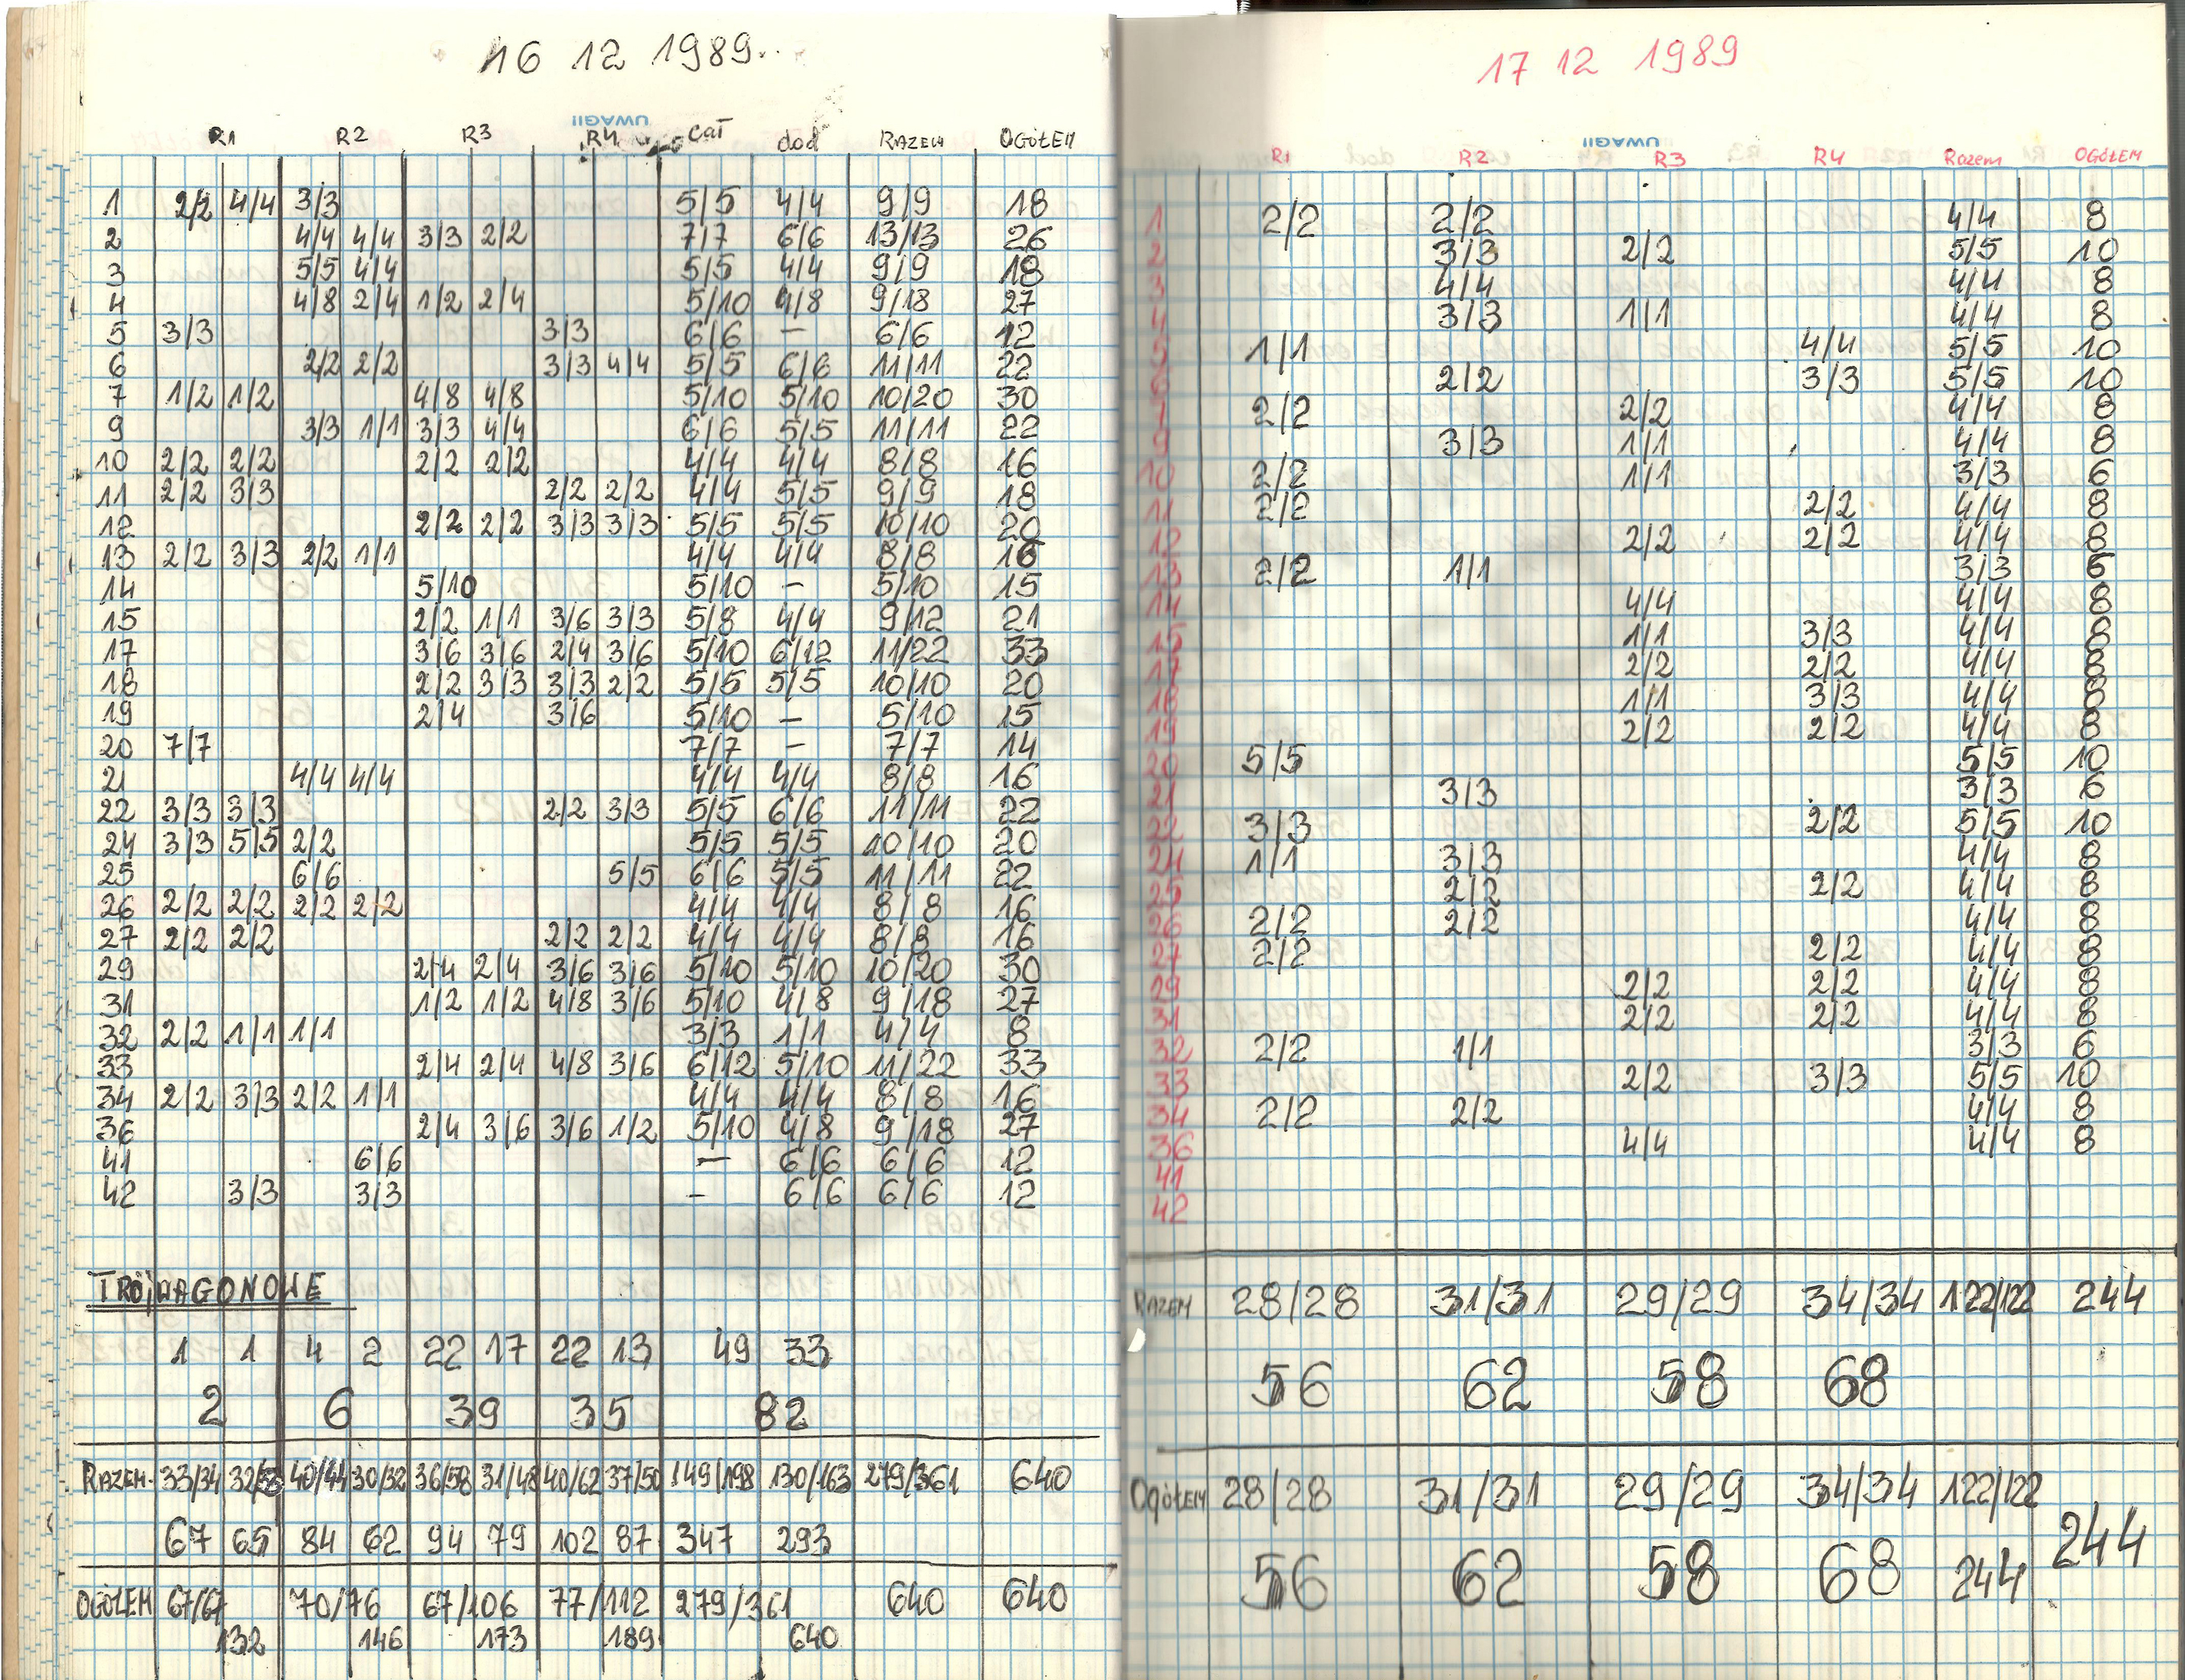 16 12 1989.
UWAGI!
R1 R2 R3 R4 cał dod RAZEM OGÓŁEM
1 2/2 4/4 3/3 5/5 4/4 9/9 18
2 4/4 4/4 3/3 2/2 7/7 6/6 13/13 26
3 5/5 4/4 5/5 4/4 9/9 18
4 4/8 2/4 1/2 2/4 5/10 4/8 9/18 27
5 3/3 3/3 6/6 – 6/6 12
6 2/2 2/2 3/3 4/4 5/5 6/6 11/11 22
7 1/2 1/2 4/8 4/8 5/10 5/10 10/20 30
9 3/3 1/1 3/3 4/4 6/6 5/5 11/11 22
10 2/2 2/2 2/2 2/2 4/4 4/4 8/8 16
11 2/2 3/3 2/2 2/2 4/4 5/5 9/9 18
12 2/2 2/2 3/3 3/3 5/5 5/5 10/10 20
13 2/2 3/3 2/2 1/1 4/4 4/4 8/8 16
14 5/10 5/10 – 5/10 15
15 2/2 1/1 3/6 3/3 5/8 4/4 9/12 21
17 3/6 3/6 2/4 3/6 5/10 6/12 11/22 33
18 2/2 3/3 3/3 2/2 5/5 5/5 10/10 20
19 2/4 3/6 5/10 – 5/10 15
20 7/7 7/7 – 7/7 14
21 4/4 4/4 4/4 4/4 8/8 16
22 3/3 3/3 2/2 3/3 5/5 6/6 11/11 22
24 3/3 5/5 2/2 5/5 5/5 10/10 20
25 6/6 5/5 6/6 5/5 11/11 22
26 2/2 2/2 2/2 2/2 4/4 4/4 8/8 16
27 2/2 2/2 2/2 2/2 4/4 4/4 8/8 16
29 2/4 2/4 3/6 3/6 5/10 5/10 10/20 30
31 1/2 1/2 4/8 3/6 5/10 4/8 9/18 27
32 2/2 1/1 1/1 3/3 1/1 4/4 8
33 2/4 2/4 4/8 3/6 6/12 5/10 11/22 33
34 2/2 3/3 2/2 1/1 4/4 4/4 8/8 16
36 2/4 3/6 3/6 1/2 5/10 4/8 9/18 27
41 6/6 – 6/6 6/6 12
42 3/3 3/3 – 6/6 6/6 12
TRÓJWAGONOWE
1 1 4 2 22 17 22 13 49 33
2 6 39 35 82
RAZEM. 33/34 32/33 40/44 30/32 36/58 31/48 40/62 37/50 149/198 130/163 279/361 640
67 65 84 62 94 79 102 87 347 293
OGÓŁEM 67/67 70/76 67/106 77/112 279/361 640 640
132 146 173 189 640
17 12 1989
UWAGI!
R1 R2 R3 R4 Razem OGÓŁEM
1 2/2 2/2 4/4 8
2 3/3 2/2 5/5 10
3 4/4 4/4 8
4 3/3 1/1 4/4 8
5 1/1 4/4 5/5 10
6 2/2 3/3 5/5 10
7 2/2 2/2 4/4 8
9 3/3 1/1 4/4 8
10 2/2 1/1 3/3 6
11 2/2 2/2 4/4 8
12 2/2 2/2 4/4 8
13 2/2 1/1 3/3 6
14 4/4 4/4 8
15 1/1 3/3 4/4 8
17 2/2 2/2 4/4 8
18 1/1 3/3 4/4 8
19 2/2 2/2 4/4 8
20 5/5 5/5 10
21 3/3 3/3 6
22 3/3 2/2 5/5 10
24 1/1 3/3 4/4 8
25 2/2 2/2 4/4 8
26 2/2 2/2 4/4 8
27 2/2 2/2 4/4 8
29 2/2 2/2 4/4 8
31 2/2 2/2 4/4 8
32 2/2 1/1 3/3 6
33 2/2 3/3 5/5 10
34 2/2 2/2 4/4 8
36 4/4 4/4 8
41
42
RAZEM 28/28 31/31 29/29 34/34 122/122 244
56 62 58 68
OGÓŁEM 28/28 31/31 29/29 34/34 122/122 244
56 62 58 68 244